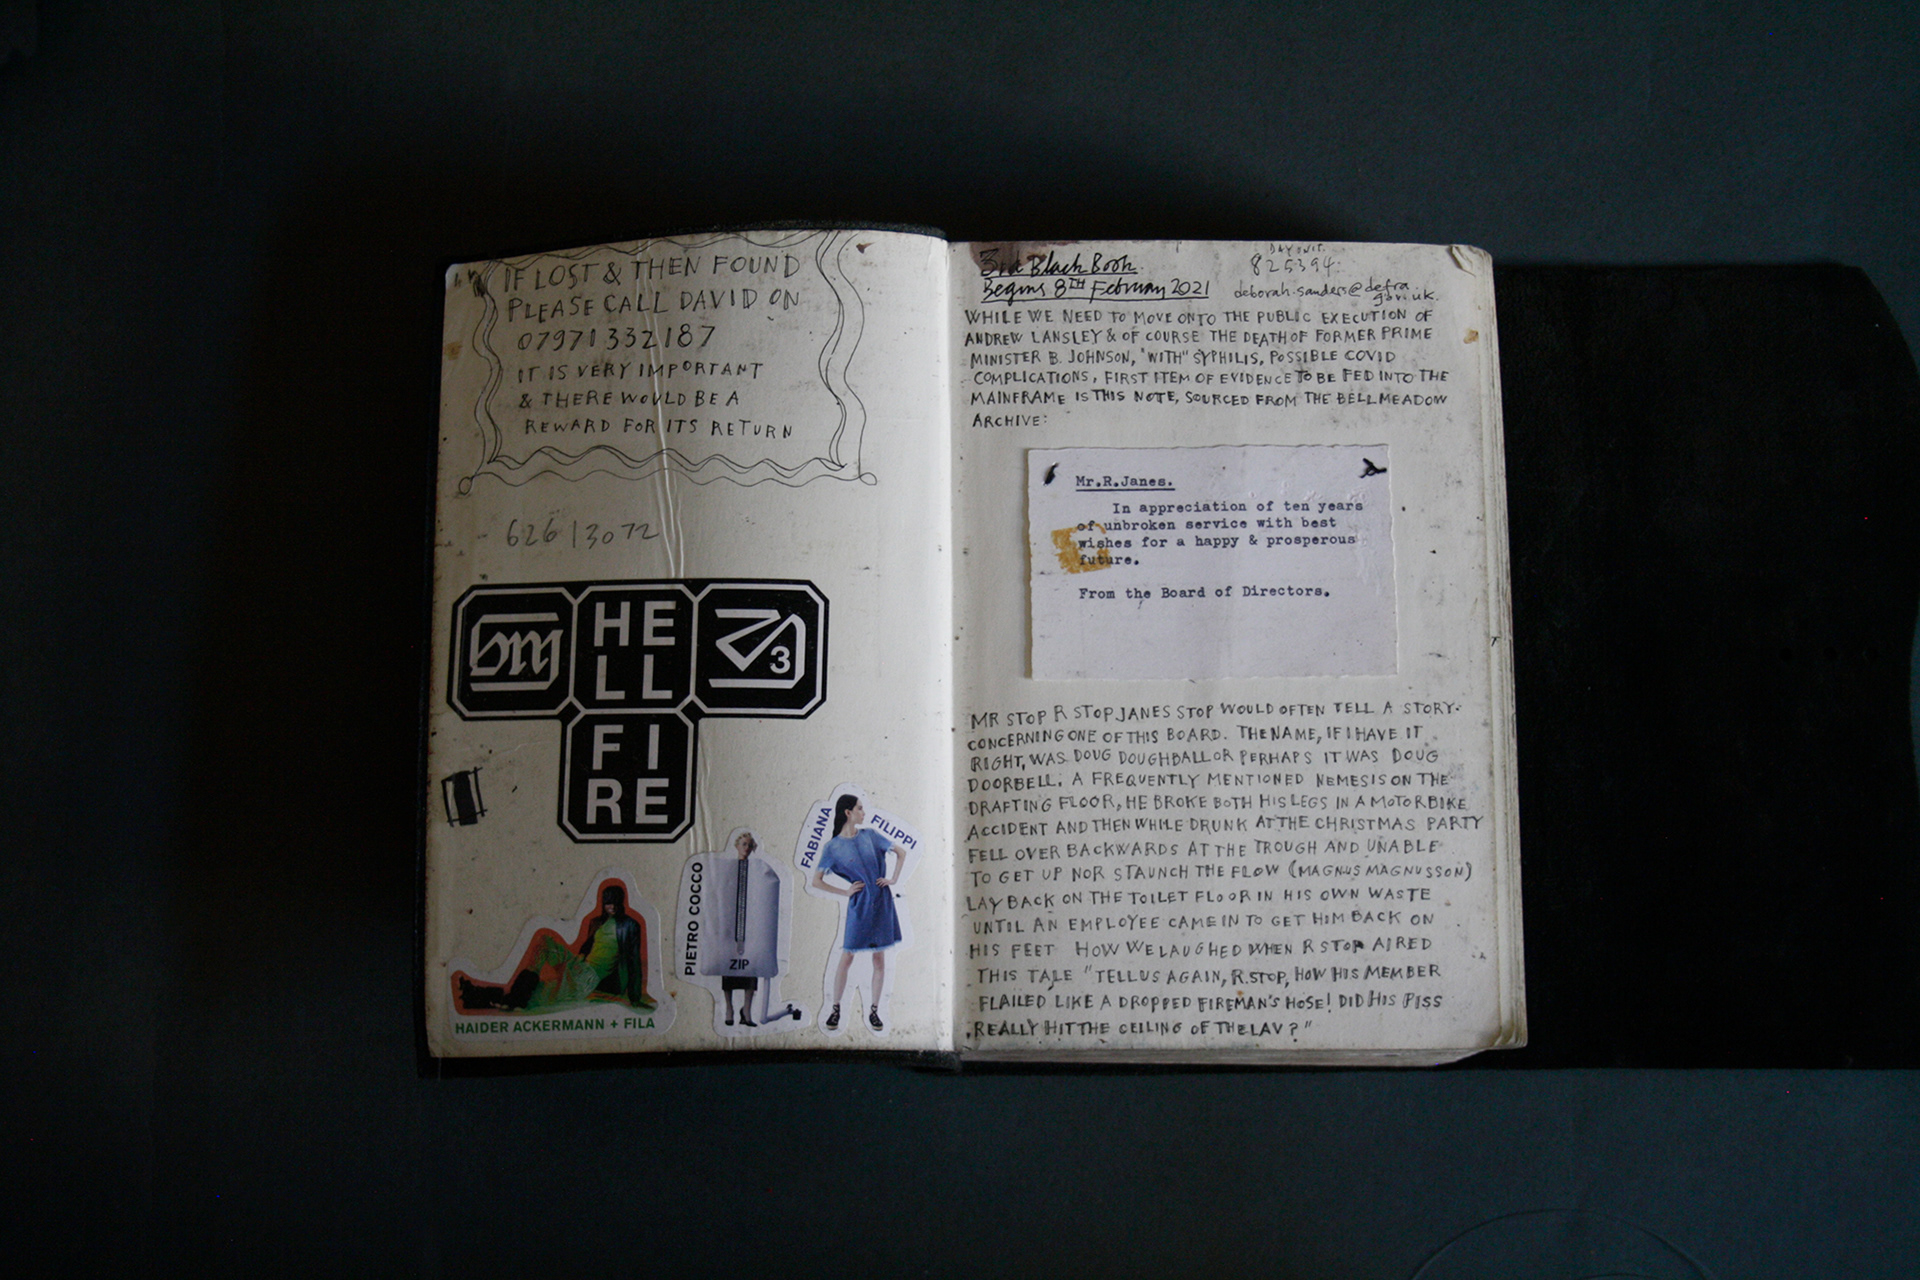 IF LOST & THEN FOUND
PLEASE CALL DAVID ON
07971332187
IT IS VERY IMPORTANT
& THERE WOULD BE A
REWARD FOR ITS RETURN
62613072
HE
LL
3
FI
RE
HAIDER ACKERMANN + FILA
PIETRO COCCO
ZIP
FABIANA FILIPPI
3rd Black Book
Begins 8TH February 2021
825394
deborah.sanders@defra.
gov.uk.
WHILE WE NEED TO MOVE ONTO THE PUBLIC EXECUTION OF
ANDREW LANSLEY & OF COURSE THE DEATH OF FORMER PRIME
MINISTER B. JOHNSON, "WITH" SYPHILIS, POSSIBLE COVID
COMPLICATIONS, FIRST ITEM OF EVIDENCE TO BE FED INTO THE
MAINFRAME IS THIS NOTE, SOURCED FROM THE BELL MEADOW
ARCHIVE:
Mr.R.Janes.
In appreciation of ten years
of unbroken service with best
wishes for a happy & prosperous
future.
From the Board of Directors.
MR STOP R STOP JANES STOP WOULD OFTEN TELL A STORY
CONCERNING ONE OF THIS BOARD. THE NAME, IF I HAVE IT
RIGHT, WAS DOUG DOUGHBALL OR PERHAPS IT WAS DOUG
DOORBELL. A FREQUENTLY MENTIONED NEMESIS ON THE
DRAFTING FLOOR, HE BROKE BOTH HIS LEGS IN A MOTORBIKE
ACCIDENT AND THEN WHILE DRUNK AT THE CHRISTMAS PARTY
FELL OVER BACKWARDS AT THE TROUGH AND UNABLE
TO GET UP NOR STAUNCH THE FLOW (MAGNUS MAGNUSSON)
LAY BACK ON THE TOILET FLOOR IN HIS OWN WASTE
UNTIL AN EMPLOYEE CAME IN TO GET HIM BACK ON
HIS FEET HOW WE LAUGHED WHEN R STOP AIRED
THIS TALE "TELL US AGAIN, R.STOP, HOW HIS MEMBER
FLAILED LIKE A DROPPED FIREMAN'S HOSE! DID HIS PISS
REALLY HIT THE CEILING OF THE LAV?"